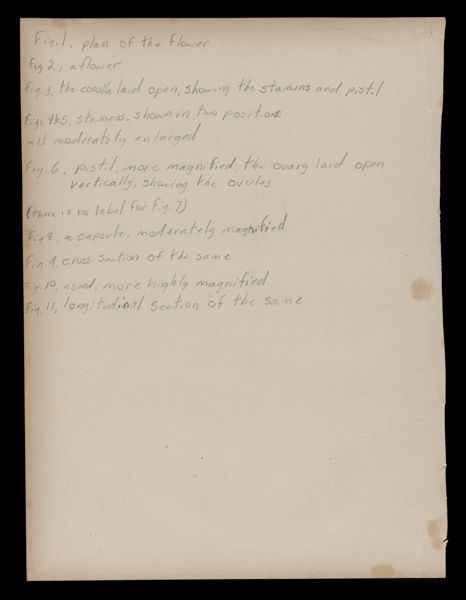 Fig. 1, plan of the flower
Fig 2, a flower
Fig. 3, the corolla laid open, showing the stamens and pistil
Figs. 4&5, stamens, shown in two positions
all moderately enlarged
Fig. 6. pistil, more magnified, the ovary laid open
vertically, showing the ovules
(there is no label for Fig. 7)
Fig 8, a capsule, moderately magnified
Fig. 9, cross-section of the same
Fig. 10, aseed, more highly magnified
Fig. 11, longitudinal section of the same